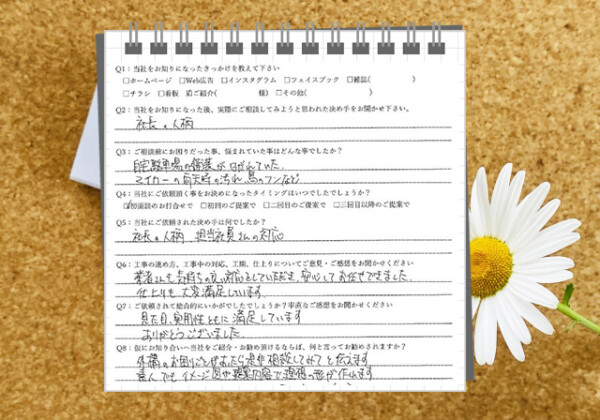 Q1：当社をお知りになったきっかけを教えて下さい
□ホームページ □Web広告 □インスタグラム □フェイスブック □雑誌( )
□チラシ □看板 ご紹介( 様) □その他( )
Q2：当社をお知りになった後、実際にご相談してみようと思われた決め手をお聞かせ下さい。
社長の人柄
Q3：ご相談前にお困りだった事、悩まれていた事はどんな事でしたか？
自宅駐車場の舗装が
マイカーの雨天時の汚れ、鳥のフンなど
Q4：当社にご依頼頂く事をお決めになったタイミングはいつでしたでしょうか？
初面談のお打合せで □初回のご提案で □二回目のご提案で □三回目以降のご提案で
Q5：当社にご依頼された決め手は何でしたか？
社長の人柄、担当社員さんの対応
Q6：工事の進め方、工事中の対応、工期、仕上りについてご意見・ご感想をお聞かせください
業者さんも気持ちの良い対応をしていただき、安心してお任せできました。
仕上りも大変満足しています
Q7：ご依頼されて総合的にいかがでしたでしょうか？率直なご感想をお聞かせください
見た目、実用性ともに満足しています
ありがとうございました。
Q8：仮にお知り合いへ当社をご紹介・お勧め頂けるならば、何と言ってお勧めされますか？
外構のお困りごとがあったら是非相談してみてと伝えます
でもイメージ図や提案内容で理想の形が作れます